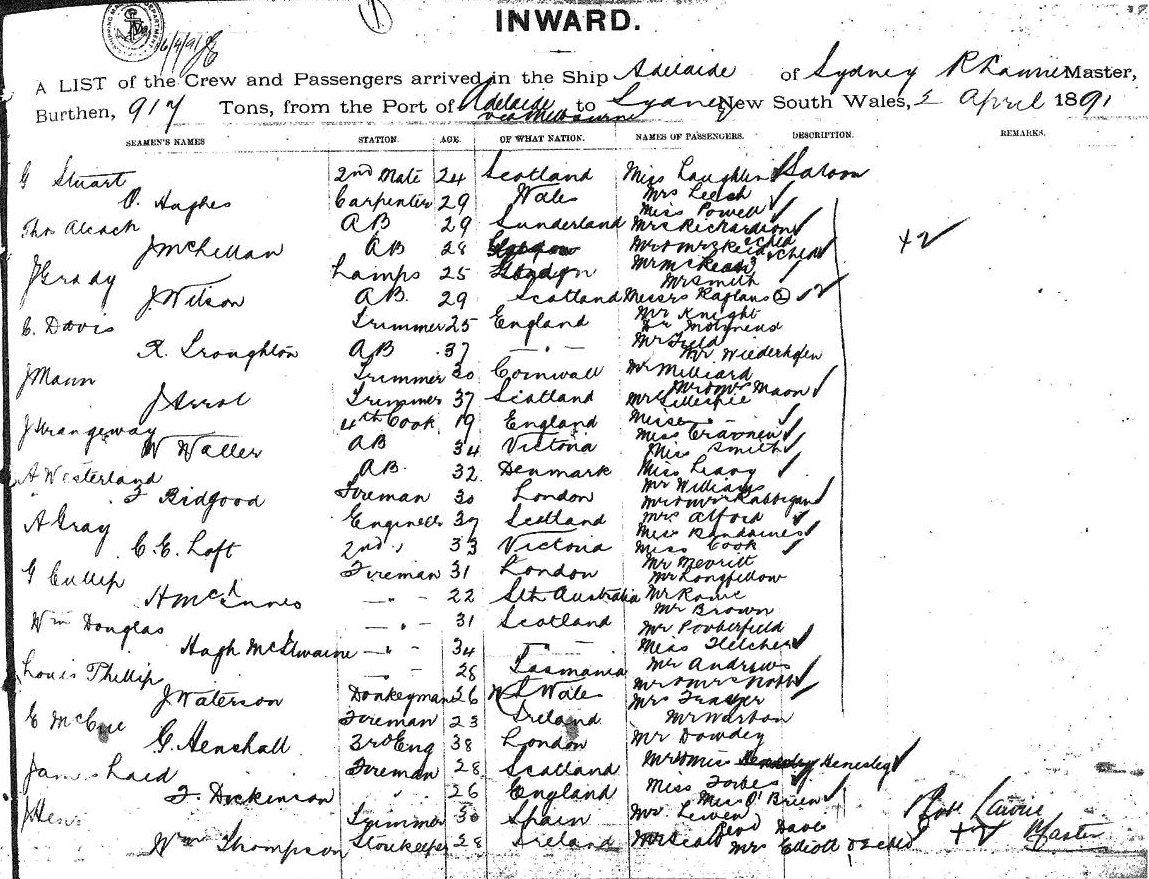 INWARD.
A LIST of the Crew and Passengers arrived in the Ship Adelaide of Sydney R Laurie Master,
Burthen, 917 Tons, from the Port of Adelaide via Melbourne to Sydney New South Wales, 2 April 1891
SEAMEN'S NAMES STATION. AGE. OF WHAT NATION. NAMES OF PASSENGERS. DESCRIPTION. REMARKS.
G Stuart 2nd Mate 24 Scotland Miss Laughlin Saloon
O. Hughes Carpenter 29 Wales Mrs Leech
Miss Powell
Thos Alcock AB 29 Sunderland Mrs Richardson
J McLellan AB 28 Mr & Mrs Reid & child +2
J Grady Lamps 25 London Mr McKean
Mr Smith
J. Wilson AB. 29 Scotland Messrs Kaplans 2
C. Davis Trimmer 25 England Mr Knight
Dr Molyneux
R. Troughton AB 37 " Mr Field
Mr Wiederhofen
J Mann Trimmer 30 Cornwall Mr Milliard
Mr & Mrs Maon
J Arrol Trimmer 37 Scotland Mr Gillespie
J Strangeway 4th Cook 19 England Misses
Miss Cravnen
W Waller AB 34 Victoria Miss Smith
A Westerland AB. 32 Denmark Miss Leavy
Mr Williams
F Bidgood Fireman 30 London Mr & Mrs Rabbigan
A Gray Engineer 39 Scotland Mrs Alford
Miss
C. E. Loft 2nd " 33 Victoria Miss Cook
G Cullip Fireman 31 London Mr Merritt
Mr Longfellow
H McInnes " 22 Sth Australia Mr Rowe
Mr Brown
Wm Douglas " 31 Scotland Mr Porterfield
Hugh McIlwaine " 34 " Miss Fletcher
Louis Phillip " 28 Tasmania Mr Andrews
Mr & Mrs Nobbs
J Waterson Donkeyman 26 N S Wales Mrs Frazer
E McCue Fireman 23 Ireland Mr Warton
G. Henshall 3rd Eng 38 London Mr Dowdey
James Laid Fireman 28 Scotland Mr & Miss Henesley
F. Dickinson " 26 England Miss Forbes
Miss O'Brien
J Hens Trimmer 30 Spain Mr Lewen
Revd Dave
Wm Thompson Storekeeper 28 Ireland Mr Scald Mrs Elliott & 2 chld
Robt Laurie
+2 Master